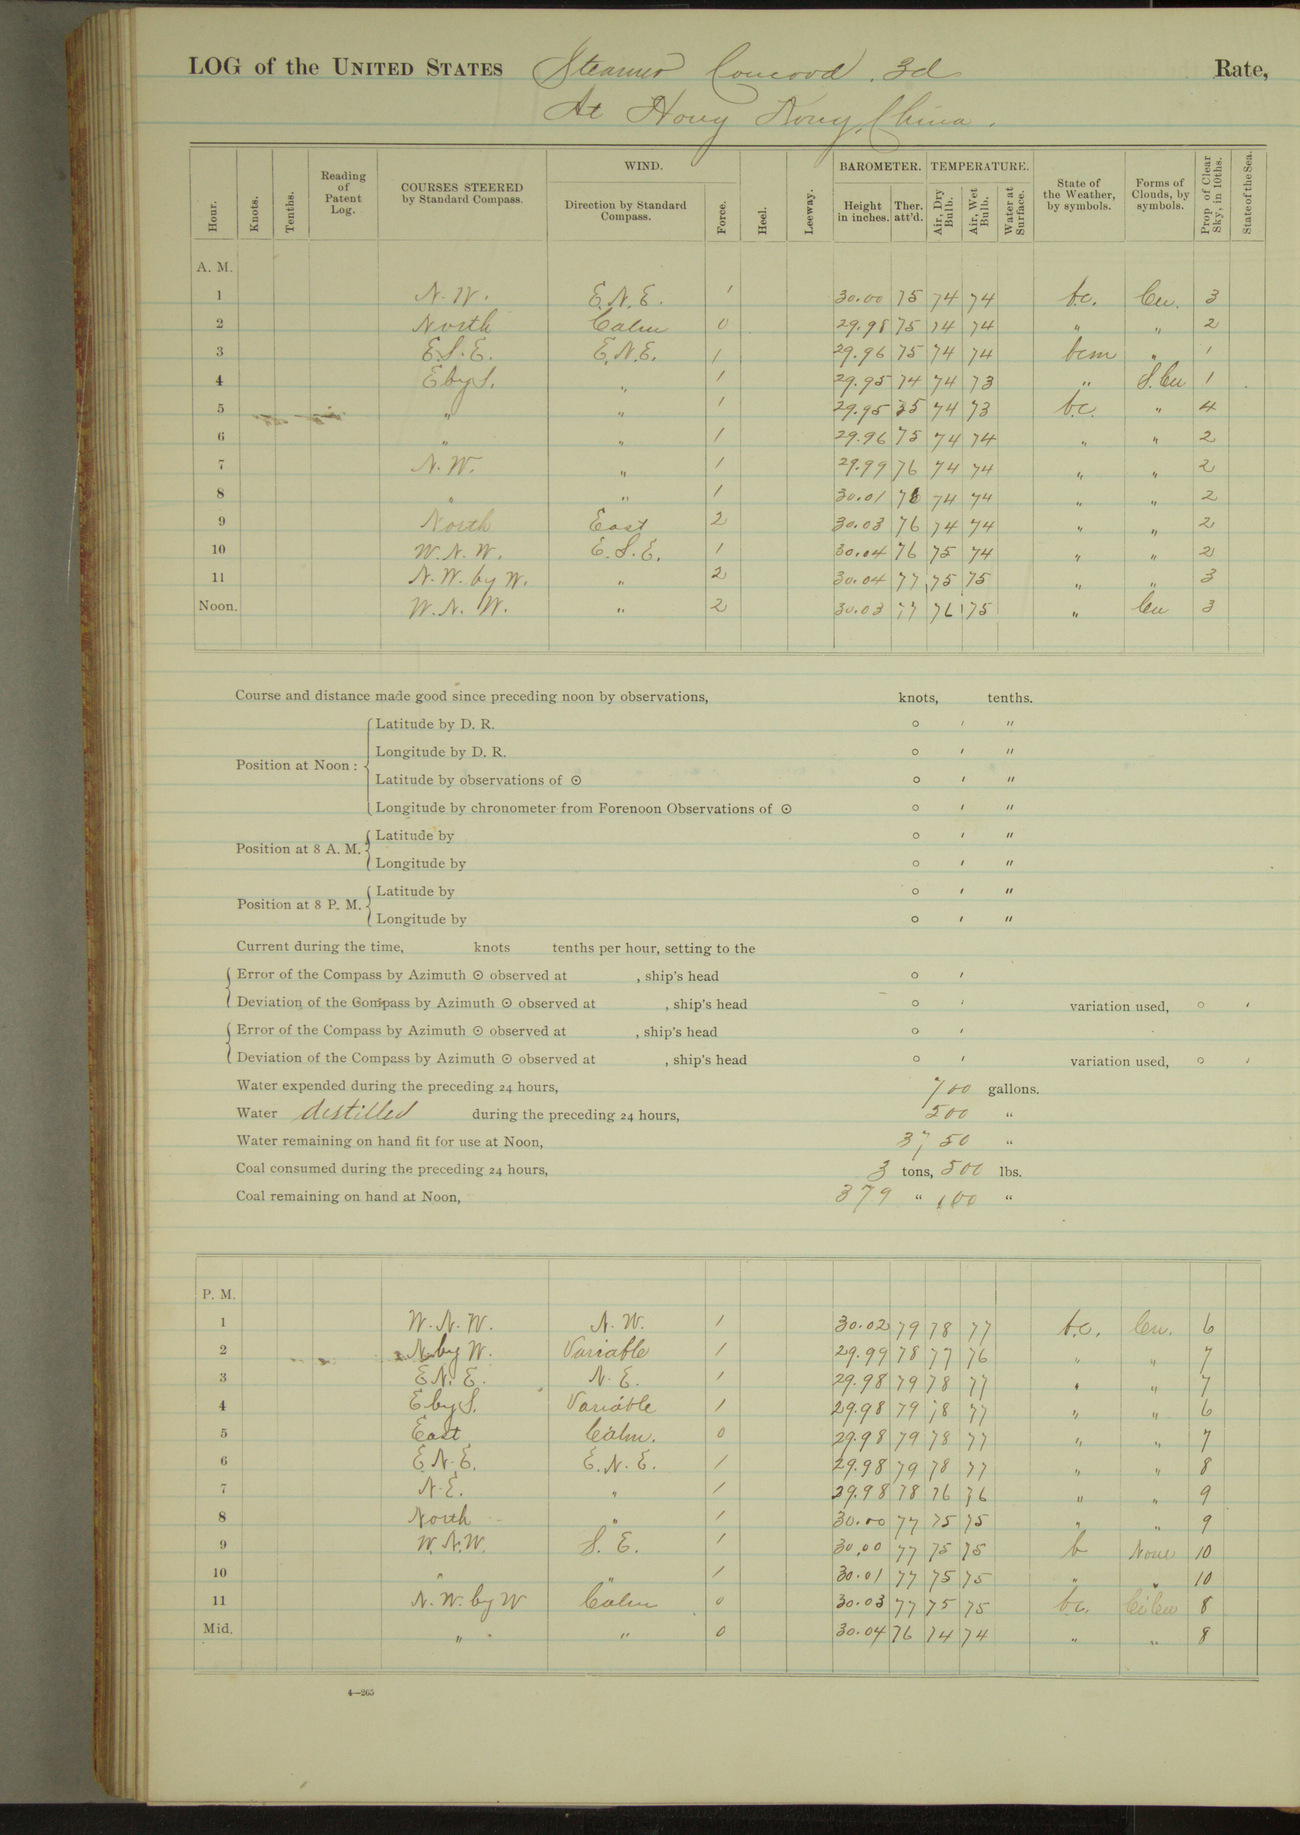 LOG of the UNITED STATES Steamer Concord. 3d Rate,
At Hong Kong, China.
Hour. Knots. Tenths. Reading of Patent Log. COURSES STEERED by Standard Compass. WIND. Direction by Standard Compass. Force. Heel. Leeway. BAROMETER. Height in inches. Ther. att'd. TEMPERATURE. Air, Dry Bulb. Air, Wet Bulb. Water at Surface. State of the Weather, by symbols. Forms of Clouds, by symbols. Prop. of Clear Sky, in 10ths. State of the Sea.
A. M.
1 N. W. E.N.E. 1 30.00 75 74 74 b.c. Cu. 3
2 North Calm 0 29.98 75 74 74 " " 2
3 E.S.E. E.N.E. 1 29.96 75 74 74 bcm " 1
4 E by S. " 1 29.95 74 74 73 " S.Cu 1
5 " " 1 29.95 75 74 73 b.c. " 4
6 " " 1 29.96 75 74 74 " " 2
7 N. W. " 1 29.99 76 74 74 " " 2
8 " " 1 30.01 76 74 74 " " 2
9 North East 2 30.03 76 74 74 " " 2
10 W. N. W. E.S.E. 1 30.04 76 75 74 " " 2
11 N. W. by W. " 2 30.04 77 75 75 " " 3
Noon. W. N. W. " 2 30.03 77 76 75 " Cu 3
Course and distance made good since preceding noon by observations, knots, tenths.
Position at Noon: Latitude by D. R. ° ′ ″
Longitude by D. R. ° ′ ″
Latitude by observations of ☉ ° ′ ″
Longitude by chronometer from Forenoon Observations of ☉ ° ′ ″
Position at 8 A. M. Latitude by ° ′ ″
Longitude by ° ′ ″
Position at 8 P. M. Latitude by ° ′ ″
Longitude by ° ′ ″
Current during the time, knots tenths per hour, setting to the
Error of the Compass by Azimuth ☉ observed at , ship's head ° ′
Deviation of the Compass by Azimuth ☉ observed at , ship's head ° ′ variation used, ° ′
Error of the Compass by Azimuth ☉ observed at , ship's head ° ′
Deviation of the Compass by Azimuth ☉ observed at , ship's head ° ′ variation used, ° ′
Water expended during the preceding 24 hours, 700 gallons.
Water distilled during the preceding 24 hours, 500 "
Water remaining on hand fit for use at Noon, 3750 "
Coal consumed during the preceding 24 hours, 3 tons, 500 lbs.
Coal remaining on hand at Noon, 379 " "
P. M.
1 W. N. W. N. W. 1 30.02 79 78 77 b.c. Cu. 6
2 N by W. Variable 1 29.99 78 77 76 " " 7
3 E.N.E. N. E. 1 29.98 79 78 77 " " 7
4 E by S. Variable 1 29.98 79 78 77 " " 6
5 East Calm. 0 29.98 79 78 77 " " 7
6 E.N.E. E.N.E. 1 29.98 79 78 77 " " 8
7 N.E. " 1 29.98 78 76 76 " " 9
8 North " 1 30.00 77 75 75 " " 9
9 W.N.W. S. E. 1 30.00 77 75 75 b None 10
10 " " 1 30.01 77 75 75 " " 10
11 N. W. by W Calm 0 30.03 77 75 75 b.c. Ci Cu 8
Mid. " " 0 30.04 76 74 74 " " 8
4—265